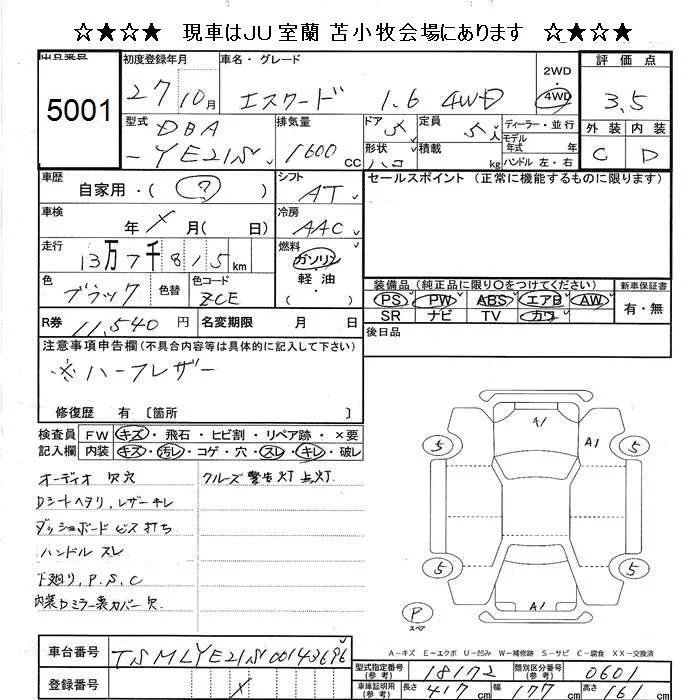 ☆★☆★ 現車はJU室蘭 苫小牧会場にあります ☆★☆★
出品番号 初度登録年月 車名・グレード 2WD 評価点
5001 27 10月 エスクード 1.6 4WD ・4WD 3.5
型式 DBA 排気量 ドア 5 定員 5人 ディーラー・並行 外装 内装
-YE21S 1600cc 形状 ハコ 積載 kg モデル年式 年 ハンドル 左・右 C D
車歴 自家用・( ? ) シフト AT セールスポイント (正常に機能するものに限ります)
車検 年 X 月( 日) 冷房 AAC
走行 13万7千815km 燃料 ガソリン
色 ブラック 色替 色コード ZCE 軽・油 ( ) 装備品 (純正品に限り○をつけてください) 新車保証書
PS PW ABS エアB AW 有・無
R券 11,540円 名変期限 月 日 SR ナビ TV カワ
注意事項申告欄(不具合内容等は具体的に記入して下さい) 後日品
※ハーフレザー
修復歴 有 〔箇所 〕
検査員 FW キズ・飛石・ヒビ割・リペア跡・×要
記入欄 内装 キズ・汚レ・コゲ・穴・スレ・キレ・破レ
オーディオ 欠穴 クルーズ警告灯点灯
Dシートヘタリ,レザーキレ
ダッシュボードビス打ち
ハンドル スレ
下廻り,P.S.C
内装Dミラー裏カバー欠
A1 A1
5 5
5 5
P スペア A1
A-キズ E-エクボ U-凹み W-補修跡 S-サビ C-腐食 XX-交換済
車台番号 TSMLYE21S00143696 型式指定番号(参考) 18172 類別区分番号(参考) 0601
登録番号 X 車庫証明用(参考) 長さ 417cm 幅 177cm 高さ 161cm